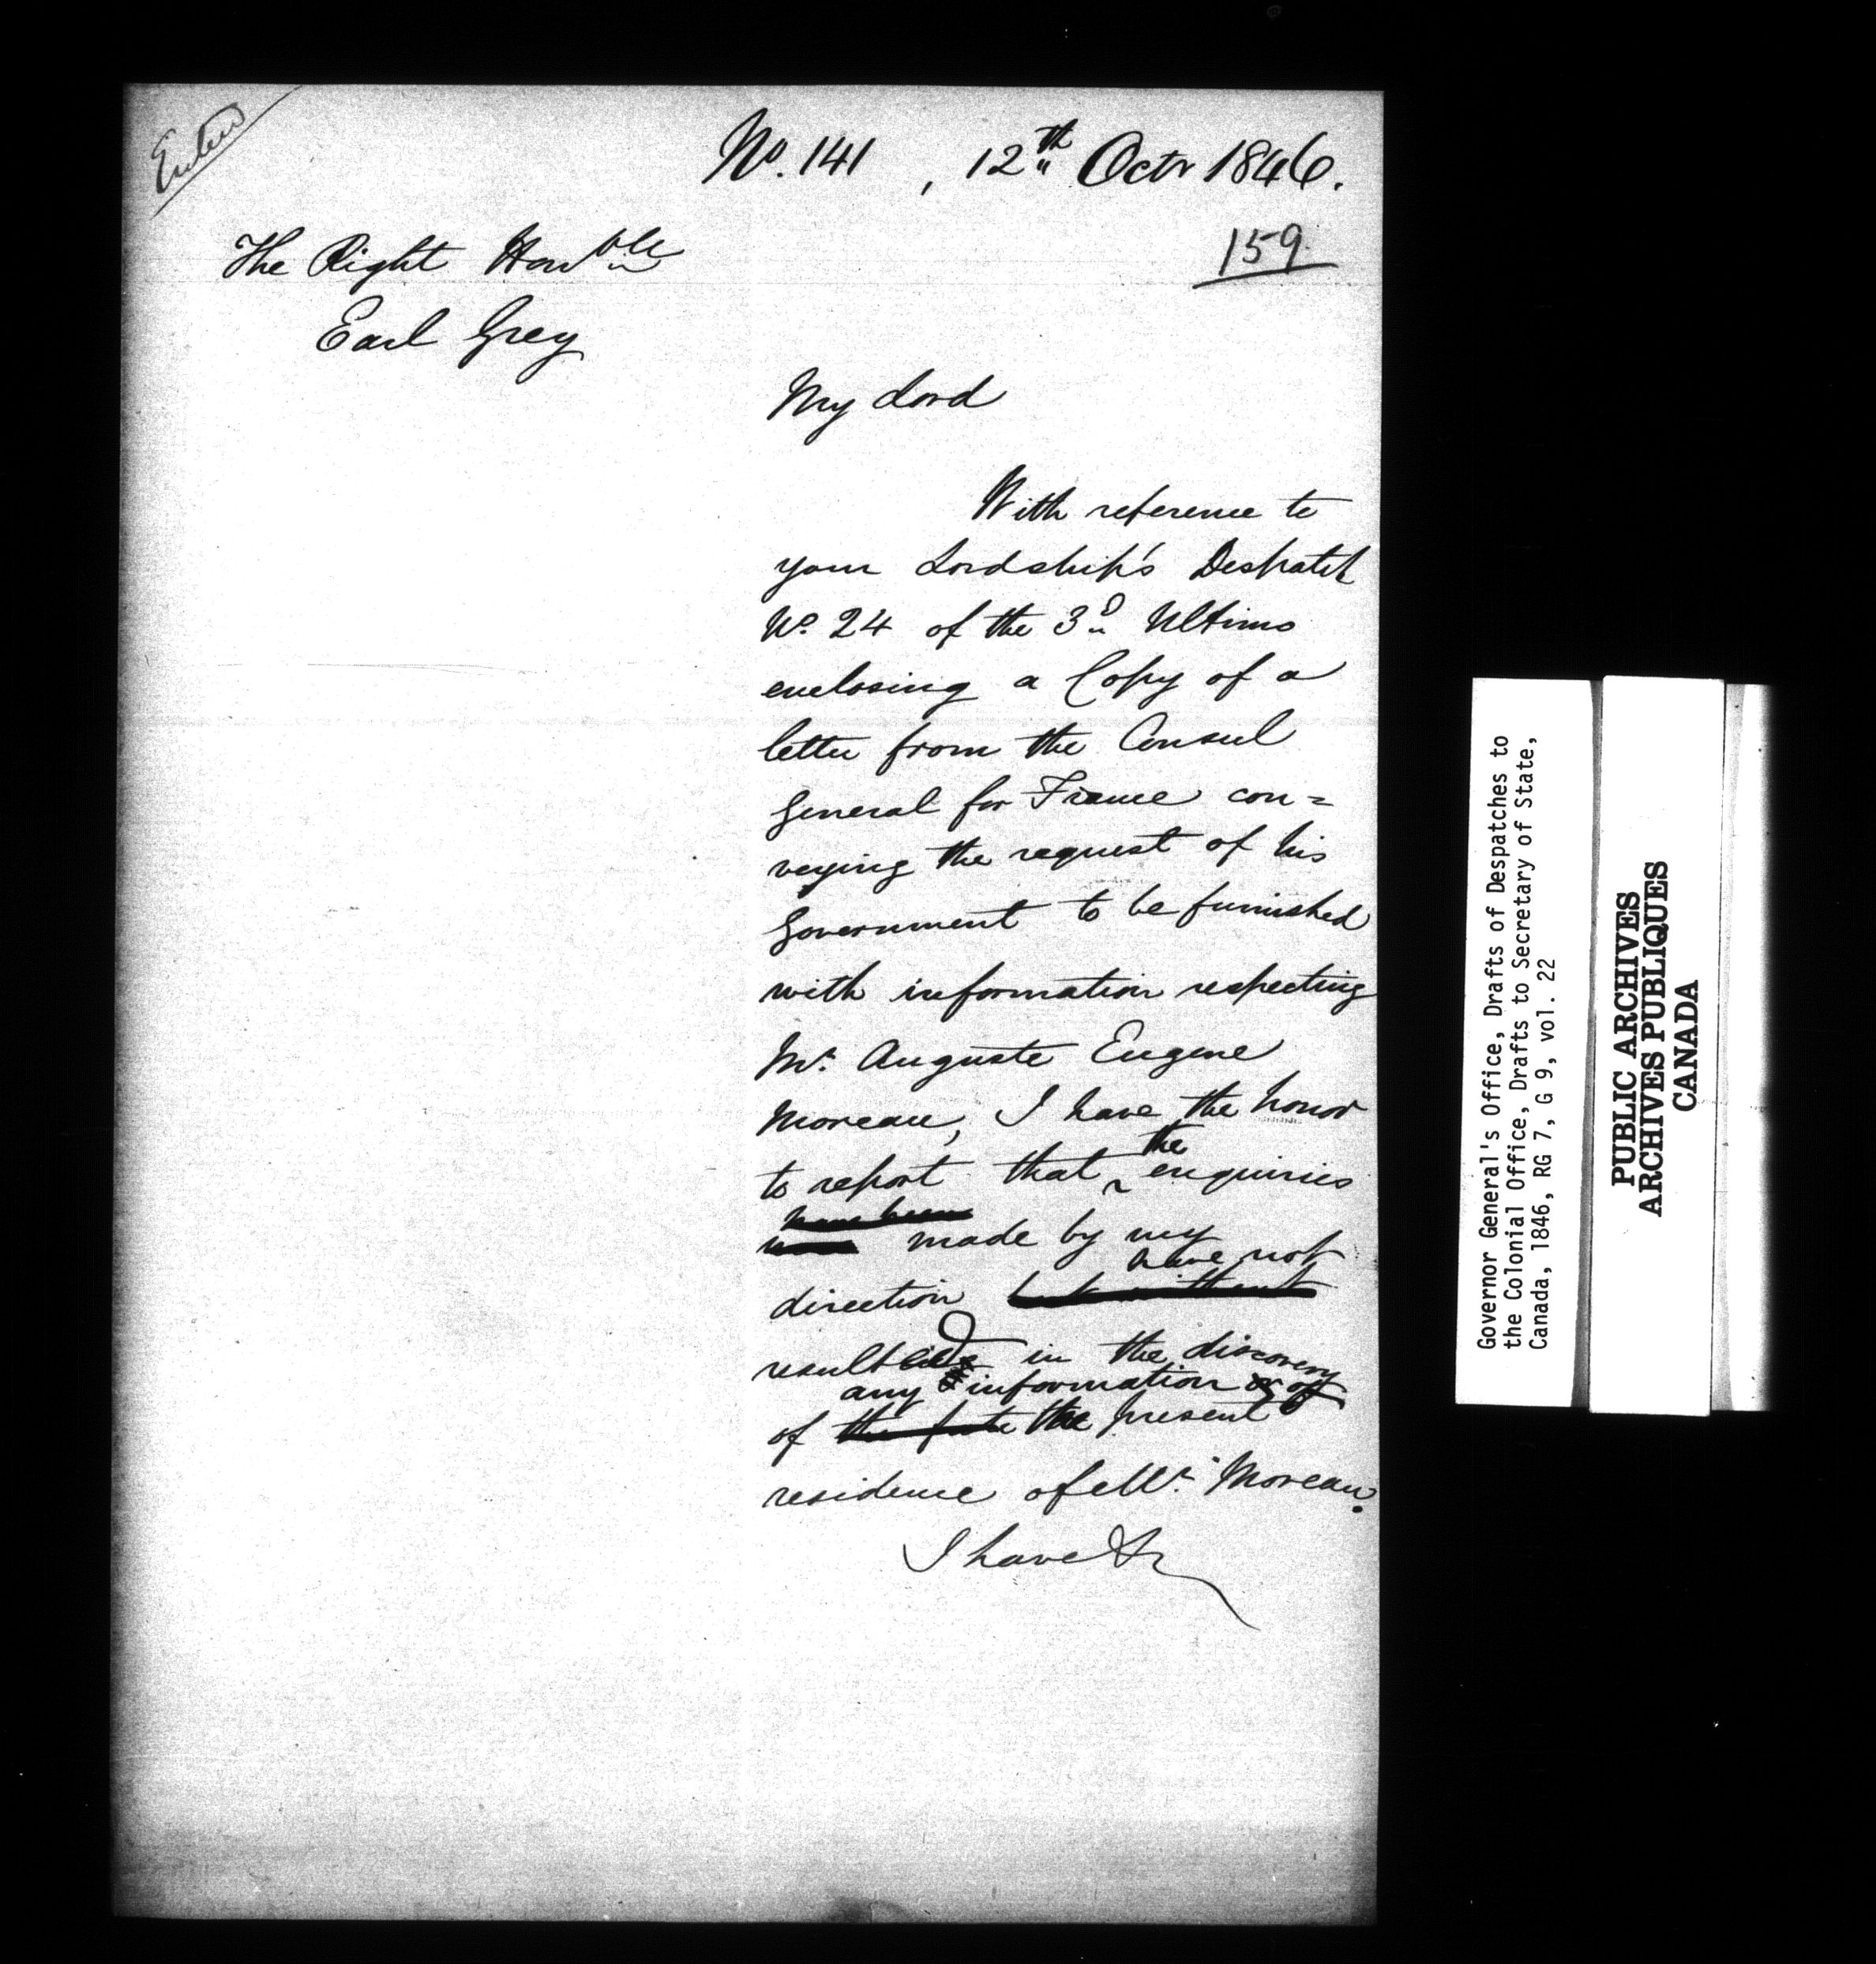 Entered
No. 141 , 12th Octr 1846.
159.
The Right Honble
Earl Grey
My Lord
With reference to
your Lordship's Despatch
No. 24 of the 3d Ultimo
enclosing a Copy of a
letter from the Consul
General for France con=
veying the request of his
Government to be furnished
with information respecting
Mr. Auguste Eugene
Moreau, I have the honor
to report that the enquiries
have been
made by my
have not
direction but without
resulted in the discovery
any information or of
of the fate the present
residence of Mr. Moreau.
I have &c
Governor General's Office, Drafts of Despatches to
the Colonial Office, Drafts to Secretary of State,
Canada, 1846, RG 7, G 9, vol. 22
PUBLIC ARCHIVES
ARCHIVES PUBLIQUES
CANADA